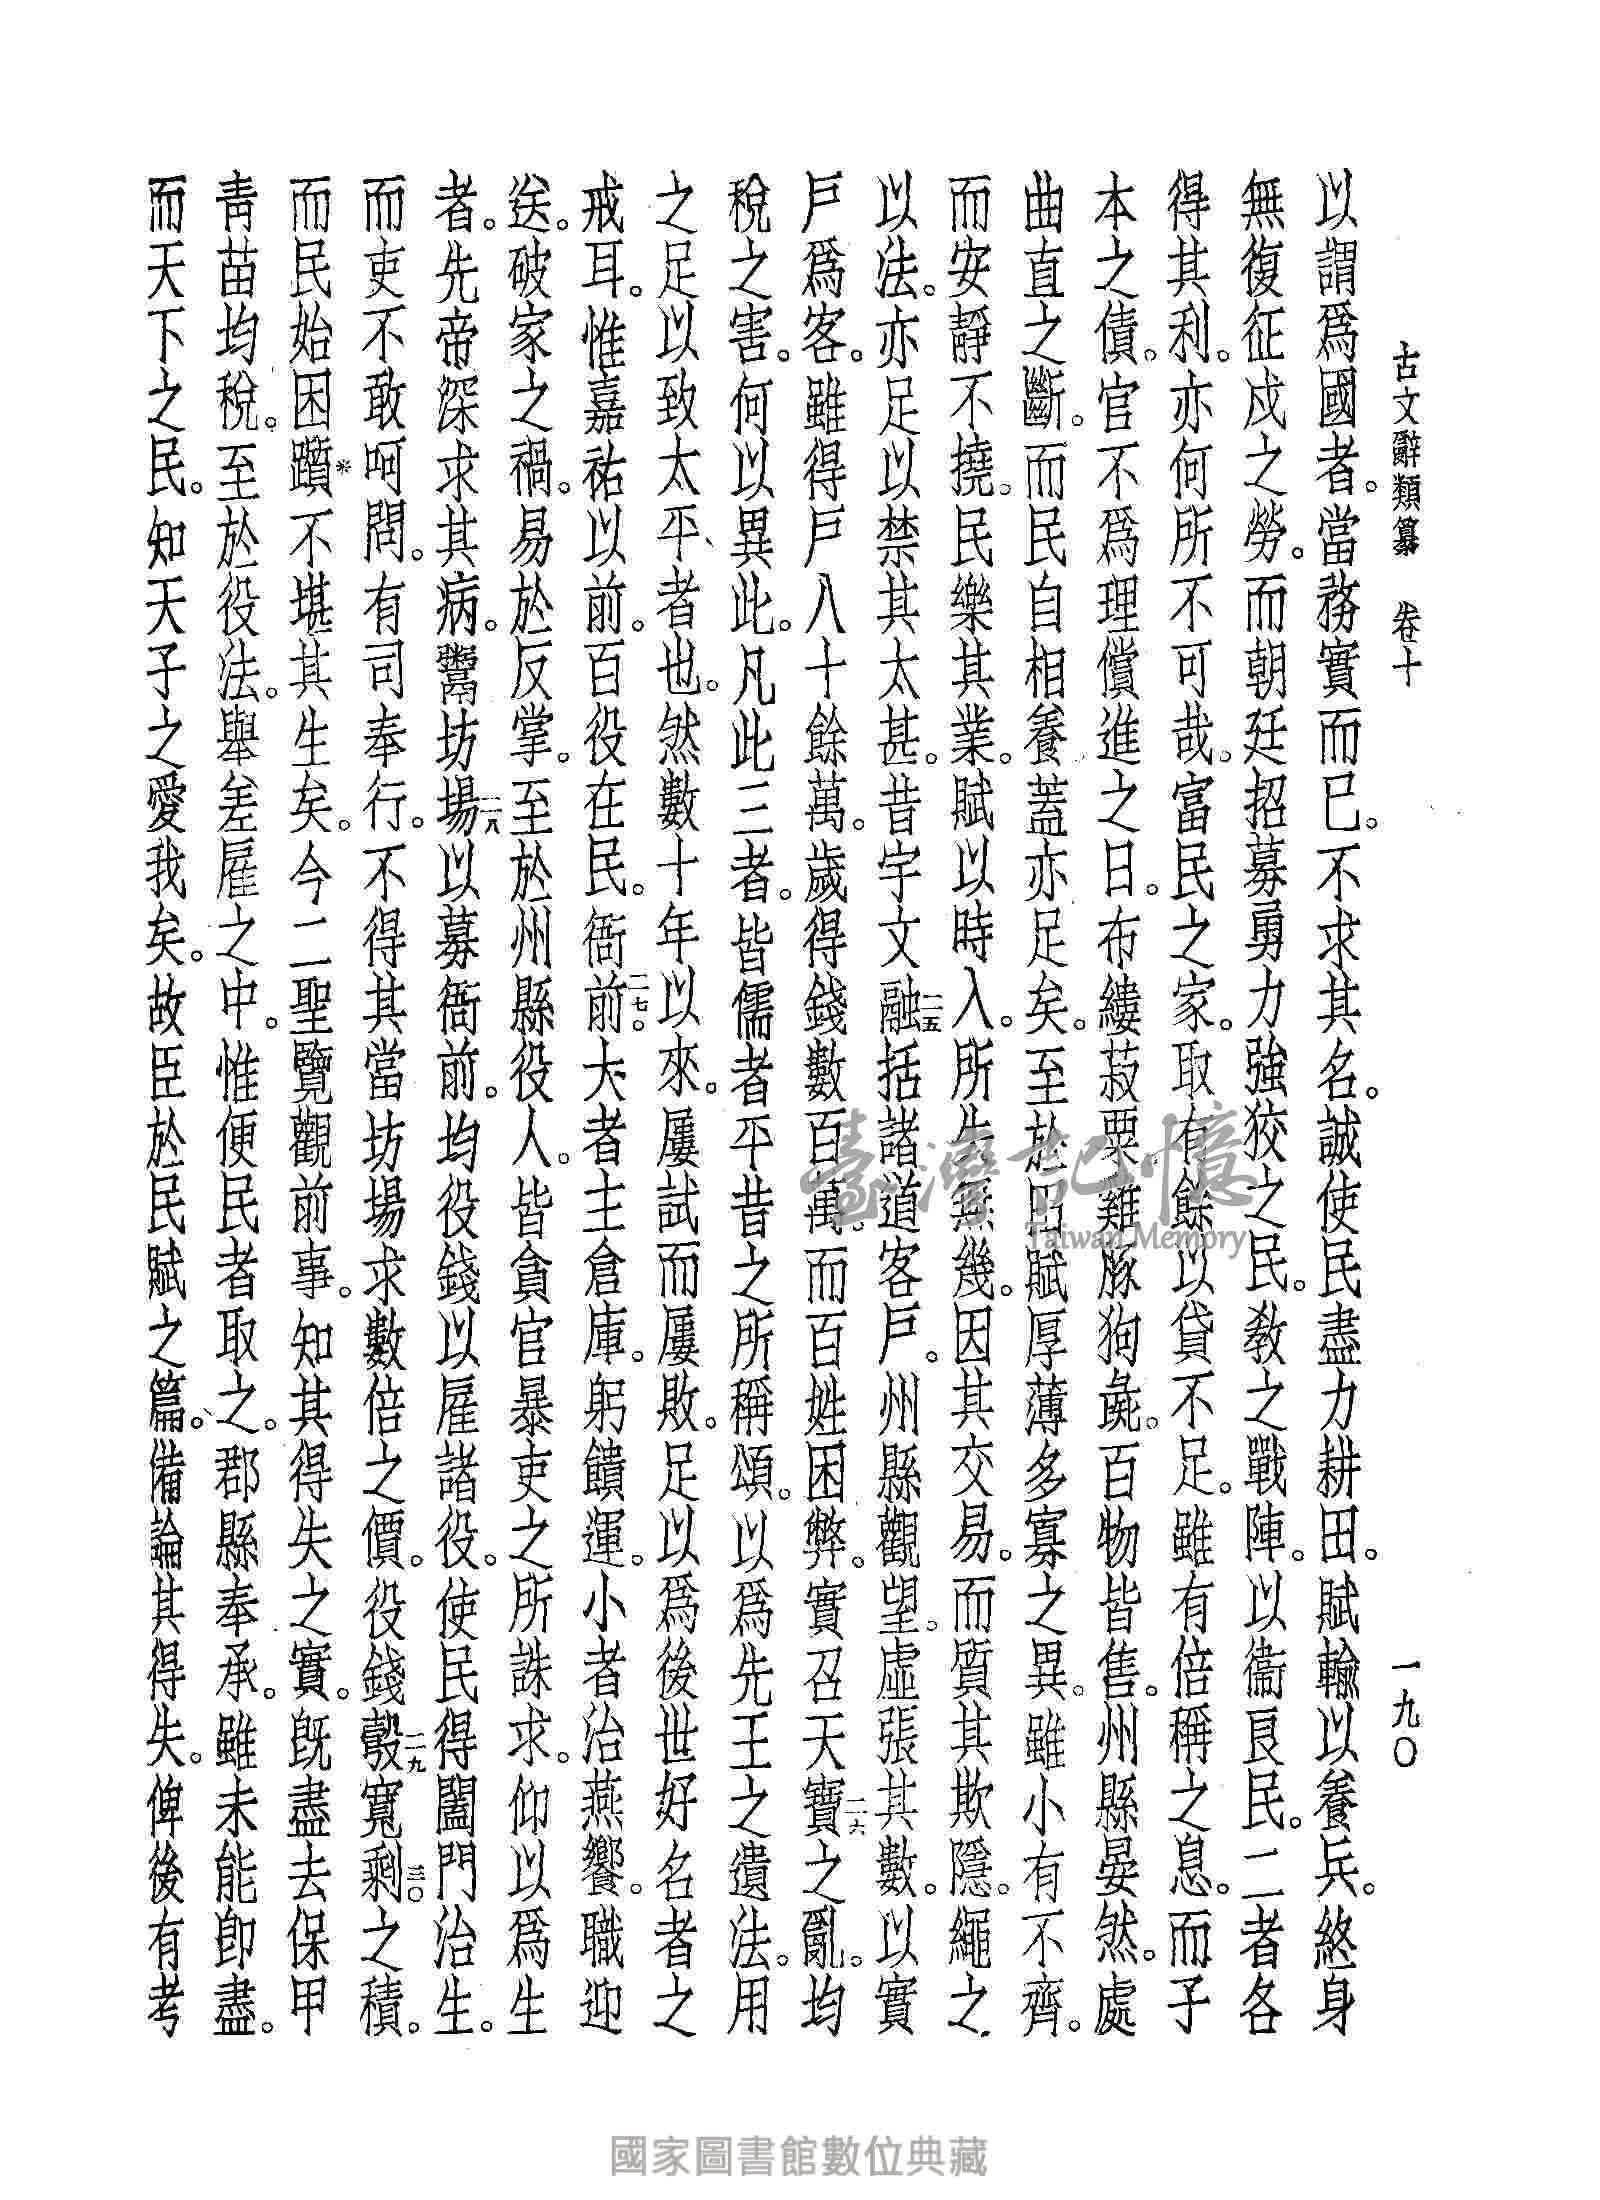 古文辭類纂　卷十　一九〇
以謂爲國者。當務實而已。不求其名。誠使民盡力耕田。賦輸以養兵。終身
無復征戍之勞。而朝廷招募勇力強狡之民。教之戰陣。以衞良民。二者各
得其利。亦何所不可哉。富民之家。取有餘以貸不足。雖有倍稱之息。而子
本之債。官不爲理償進之日。布縷菽粟雞豚狗彘。百物皆售。州縣晏然。處
曲直之斷。而民自相養蓋亦足矣。至於田賦厚薄多寡之異。雖小有不齊。
而安靜不撓。民樂其業。賦以時入。所失無幾。因其交易。而質其欺隱。繩之
以法。亦足以禁其太甚。昔宇文融二五括諸道客戶。州縣觀望。虛張其數。以實
戶爲客。雖得戶八十餘萬。歲得錢數百萬。而百姓困弊。實召天寶二六之亂。均
稅之害。何以異此。凡此三者。皆儒者平昔之所稱頌。以爲先王之遺法。用
之足以致太平、者也。然數十年以來。屢試而屢敗。足以爲後世好名者之
戒耳。惟嘉祐以前。百役在民。衙前二七。大者主倉庫。躬饋運。小者治燕饗。職迎
送。破家之禍。易於反掌。至於州縣役人。皆貪官暴吏之所誅求。仰以爲生
者。先帝深求其病。鬻坊場二八以募衙前。均役錢以雇諸役。使民得闔門治生。
而吏不敢呵問。有司奉行。不得其當坊場求數倍之價。役錢彀二九寬剩三〇之積。
而民始困躓*不堪其生矣。今二聖覽觀前事。知其得失之實。旣盡去保甲
靑苗均稅。至於役法。舉差雇之中。惟便民者取之。郡縣奉承。雖未能卽盡。
而天下之民。知天子之愛我矣。故臣於民賦之篇。備論其得失。俾後有考
臺灣記憶
Taiwan Memory
國家圖書館數位典藏